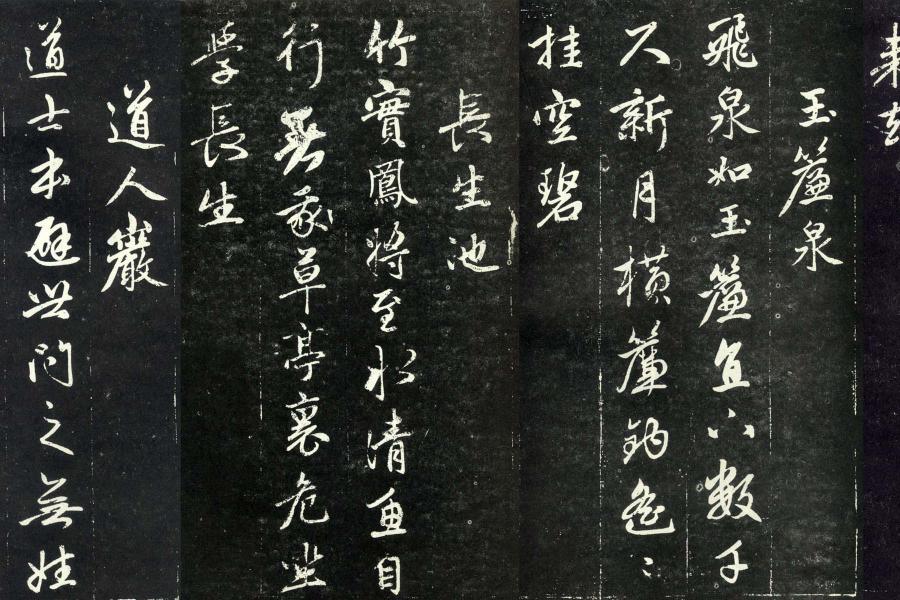 玉簾泉
飛泉如玉簾直下數千
尺新月橫簾鉤遙遙
挂空碧
長生池
竹實鳳將至水清魚自
行 我草亭裏危坐
學長生
道人巖
道士本避世問之無姓